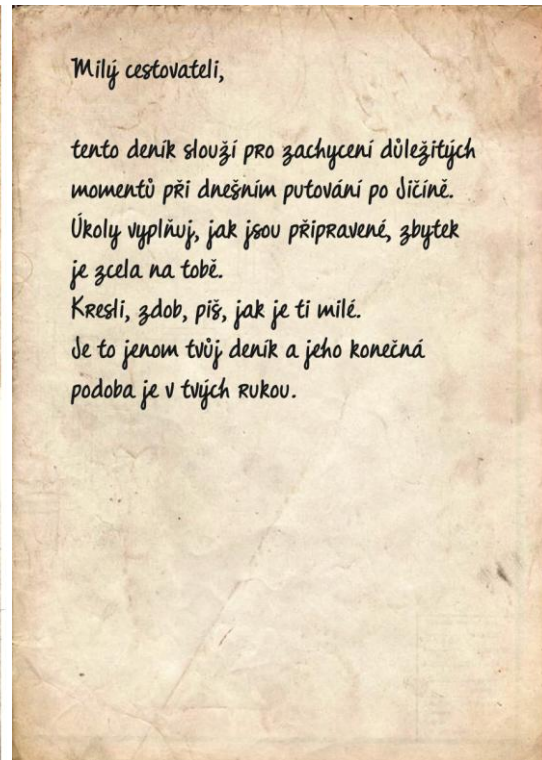 Milý cestovateli,
tento deník slouží pro zachycení důležitých
momentů při dnešním putování po Jičíně.
Úkoly vyplňuj, jak jsou připravené, zbytek
je zcela na tobě.
Kresli, zdob, piš, jak je ti milé.
Je to jenom tvůj deník a jeho konečná
podoba je v tvých rukou.